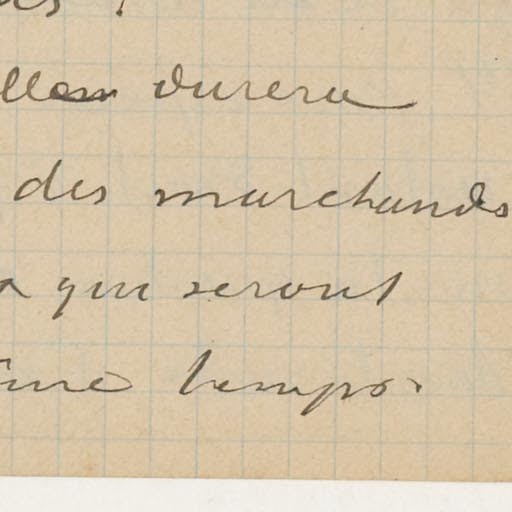 durera
des marchands
qui seront
temps.